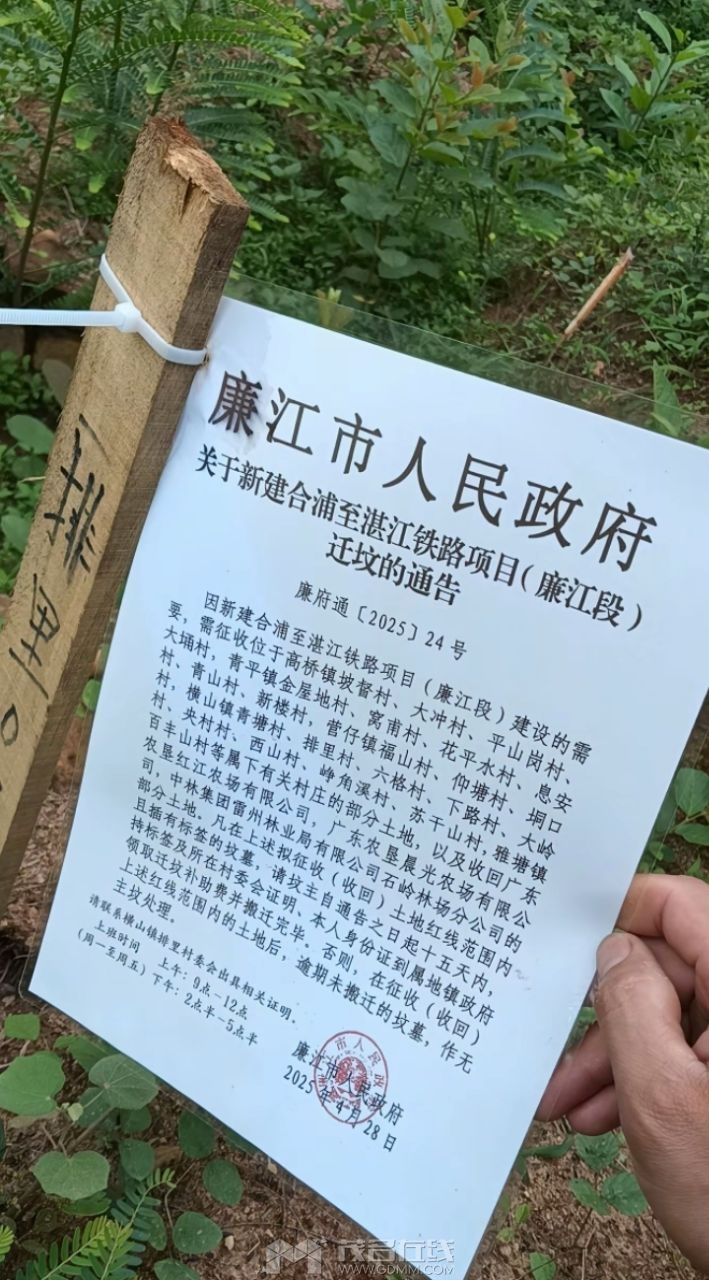 廉江市人民政府
关于新建合浦至湛江铁路项目（廉江段）
迁坟的通告
廉府通〔2025〕24号
因新建合浦至湛江铁路项目（廉江段）建设的需
要，需征收位于高桥镇坡督村、大冲村、平山岗村、
大埇村，青平镇金屋地村、窝甫村、花平水村、息安
村、青山村、新楼村，营仔镇福山村、仰塘村、垌口
村，横山镇青塘村、排里村、六格村、下路村、大岭
村、央村村、西山村、峥角溪村、苏干山村，雅塘镇
百丰山村等属下有关村庄的部分土地，以及收回广东
农垦红江农场有限公司，广东农垦晨光农场有限公
司，中林集团雷州林业局有限公司石岭林场分公司的
部分土地。凡在上述拟征收（收回）土地红线范围内
且插有标签的坟墓，请坟主自通告之日起十五天内，
持标签及所在村委会证明、本人身份证到属地镇政府
领取迁坟补助费并搬迁完毕。否则，在征收（收回）
上述红线范围内的土地后，逾期未搬迁的坟墓，作无
主坟处理。
请联系横山镇排里村委会出具相关证明。
上班时间 上午：9点-12点
（周一至周五）下午：2点半-5点半
廉江市人民政府
2025年4月28日
排里0
茂名在线
WWW.GDMM.COM